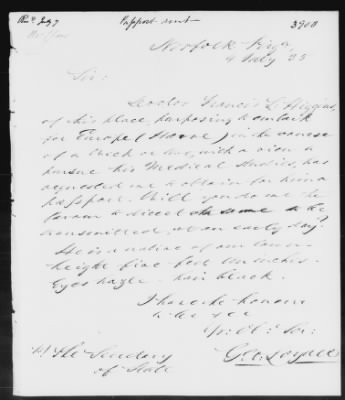 Passport sent
3900
Norfolk Virga
4 July 25
Sir:
Doctor Francis L. Higgins,
of this place, purposing to embark
for Europe (Havre) in the course
of a week or two, with a view to
pursue his Medical Studies, has
requested me to obtain for him a
passport. Will you do me the
favour to direct the same to be
transmitted, at an early day?
He is a native of our town
height five feet inches.
Eyes hazle - hair black.
I have the honour
to be &c &c
Yr: Ob: Svt:
Geo: Loyall
To The Secretary
of State